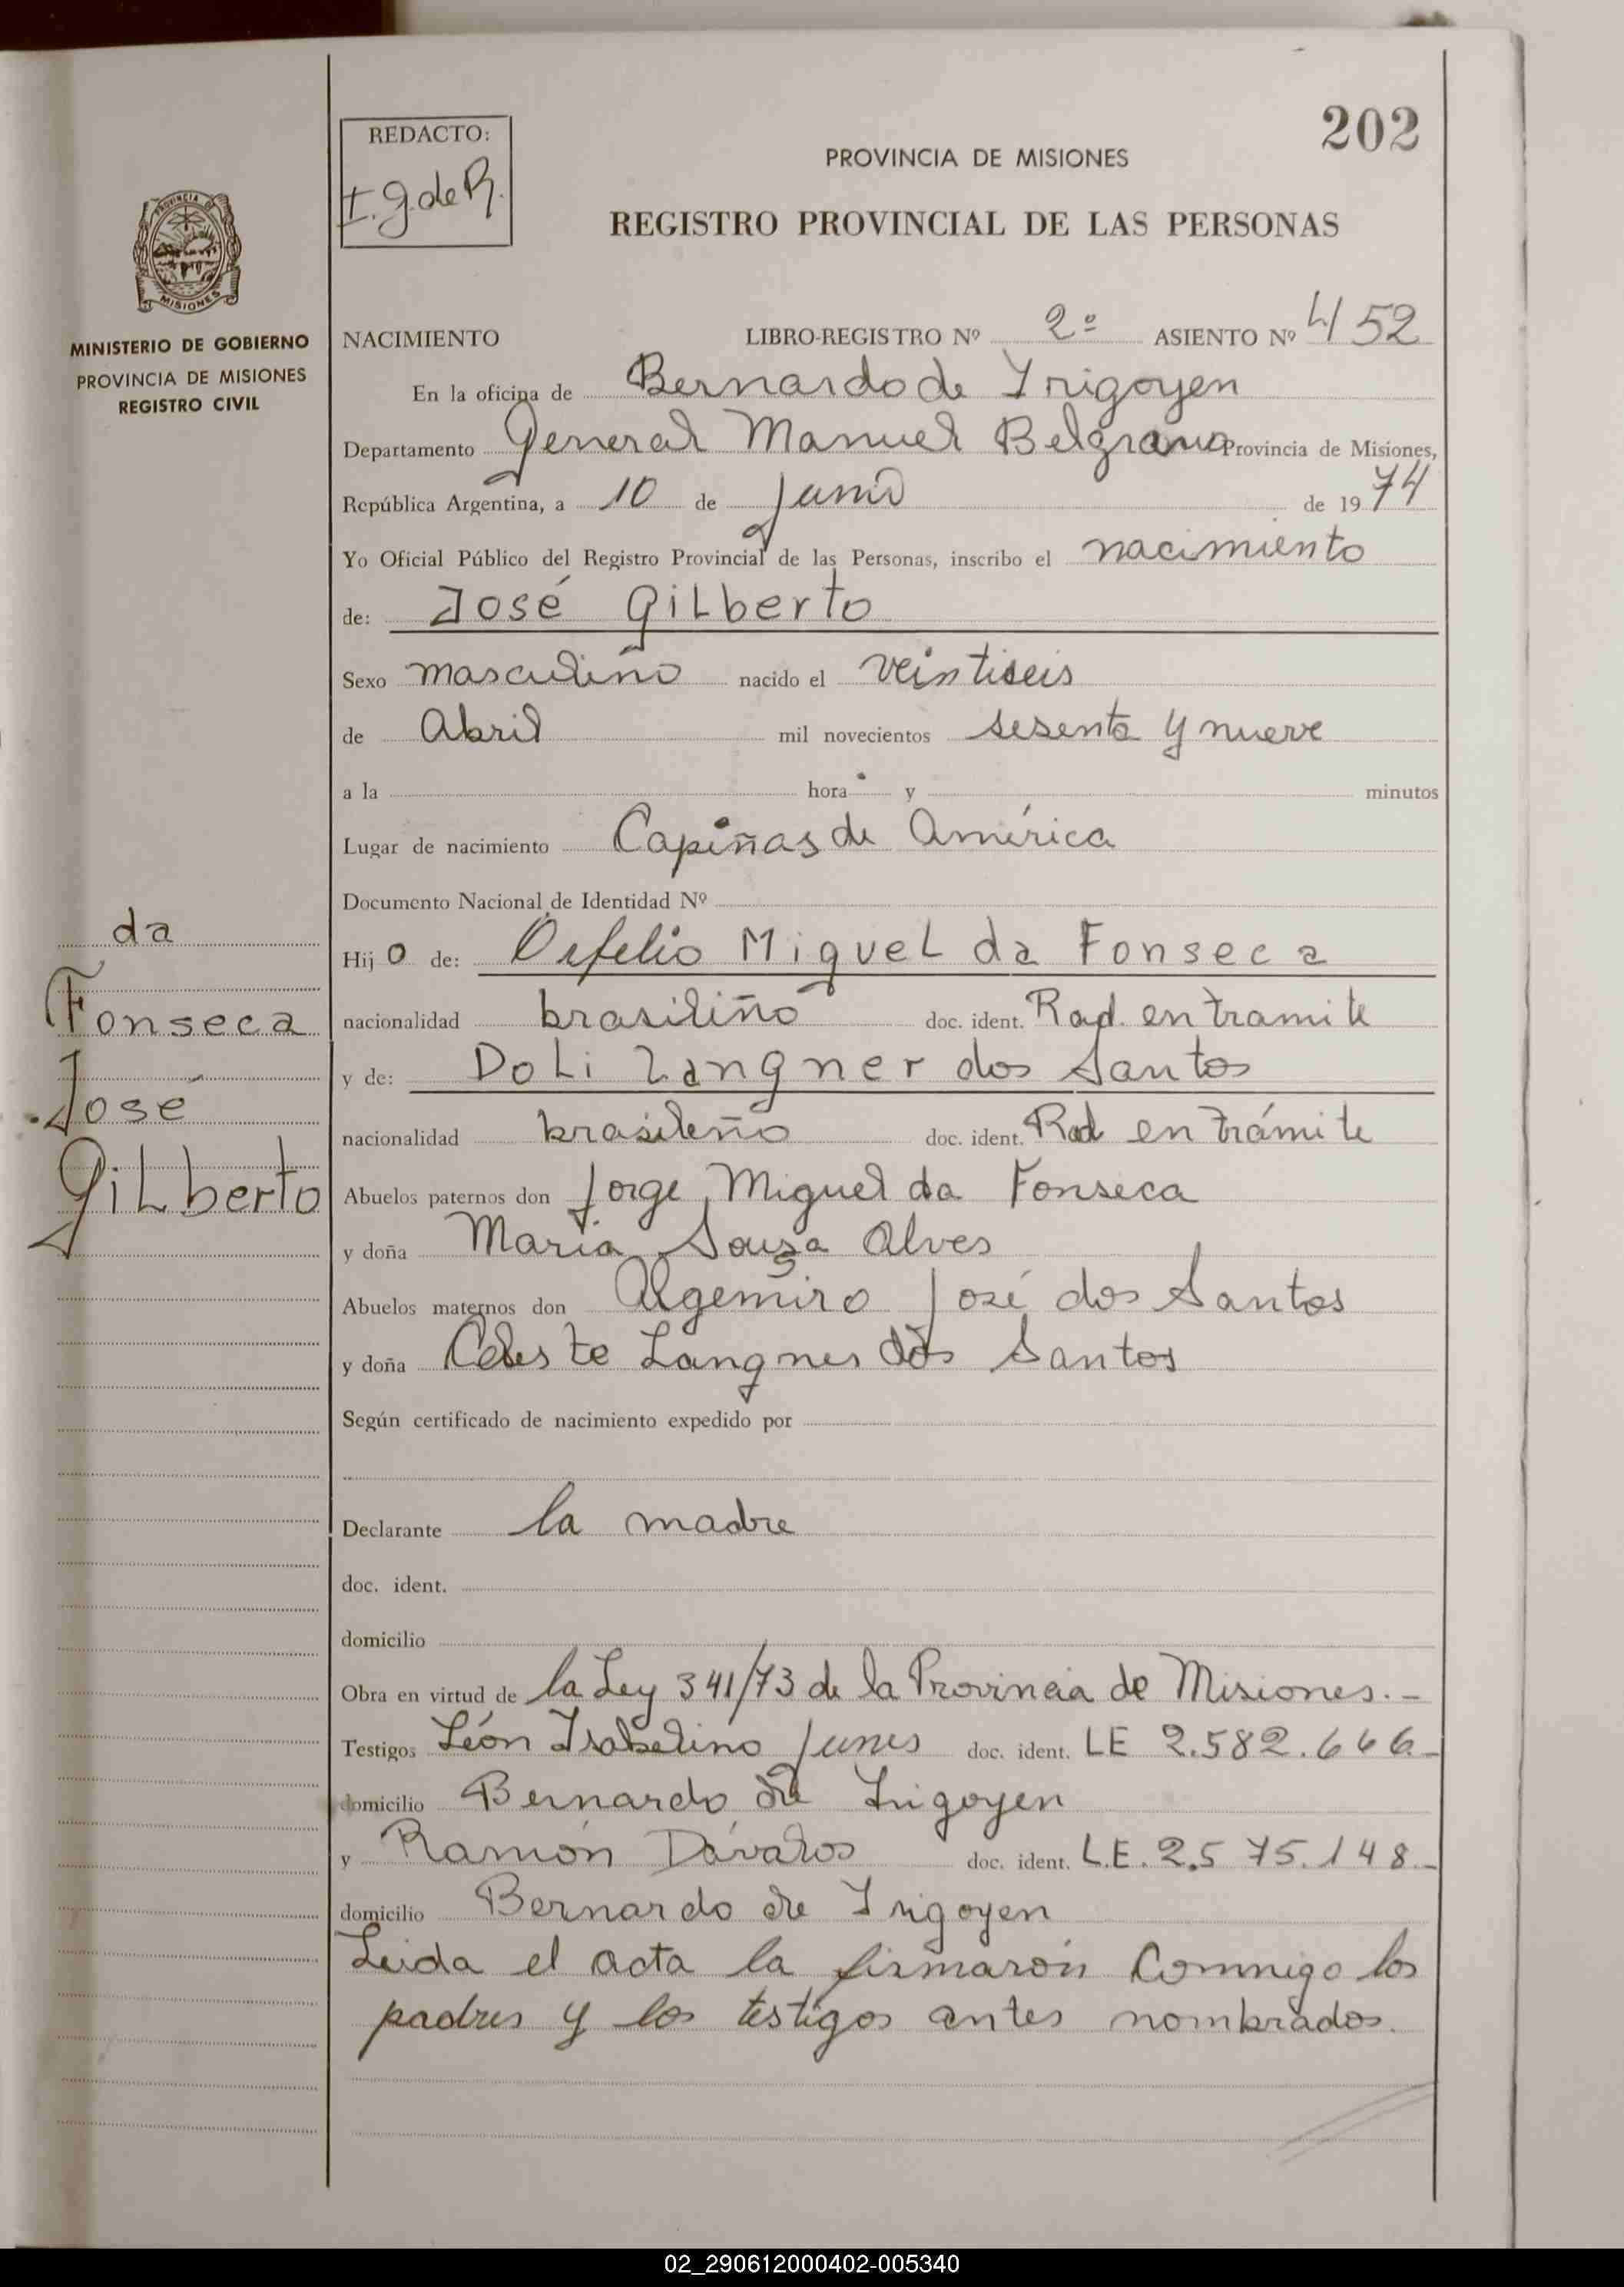 202
REDACTO:
I. g. de R.
PROVINCIA DE MISIONES
REGISTRO PROVINCIAL DE LAS PERSONAS
PROVINCIA DE MISIONES
MINISTERIO DE GOBIERNO
PROVINCIA DE MISIONES
REGISTRO CIVIL
NACIMIENTO LIBRO-REGISTRO Nº 2º ASIENTO Nº 452
En la oficina de Bernardo de Irigoyen
Departamento General Manuel Belgrano Provincia de Misiones,
República Argentina, a 10 de Junio de 1974
Yo Oficial Público del Registro Provincial de las Personas, inscribo el nacimiento
de: José Gilberto
Sexo masculino nacido el veintiseis
de Abril mil novecientos sesenta y nueve
a la hora y minutos
Lugar de nacimiento Capiñas de América
Documento Nacional de Identidad Nº
da
Fonseca
José
Gilberto
Hijo de: Orfelio Miguel da Fonseca
nacionalidad brasiliño doc. ident. Rad. en tramite
y de: Doli Langner dos Santos
nacionalidad brasileño doc. ident. Rad en trámite
Abuelos paternos don Jorge Miguel da Fonseca
y doña María Souza Alves
Abuelos maternos don Algemiro José dos Santos
y doña Celeste Langner dos Santos
Según certificado de nacimiento expedido por
Declarante la madre
doc. ident.
domicilio
Obra en virtud de la Ley 341/73 de la Provincia de Misiones.-
Testigos León Isabelino Junes doc. ident. LE 2.582.646.-
domicilio Bernardo de Irigoyen
y Ramón Dávalos doc. ident. L.E. 2.575.148.-
domicilio Bernardo de Irigoyen
Leida el acta la firmarón Conmigo los
padres y los testigos antes nombrados.
02_290612000402-005340